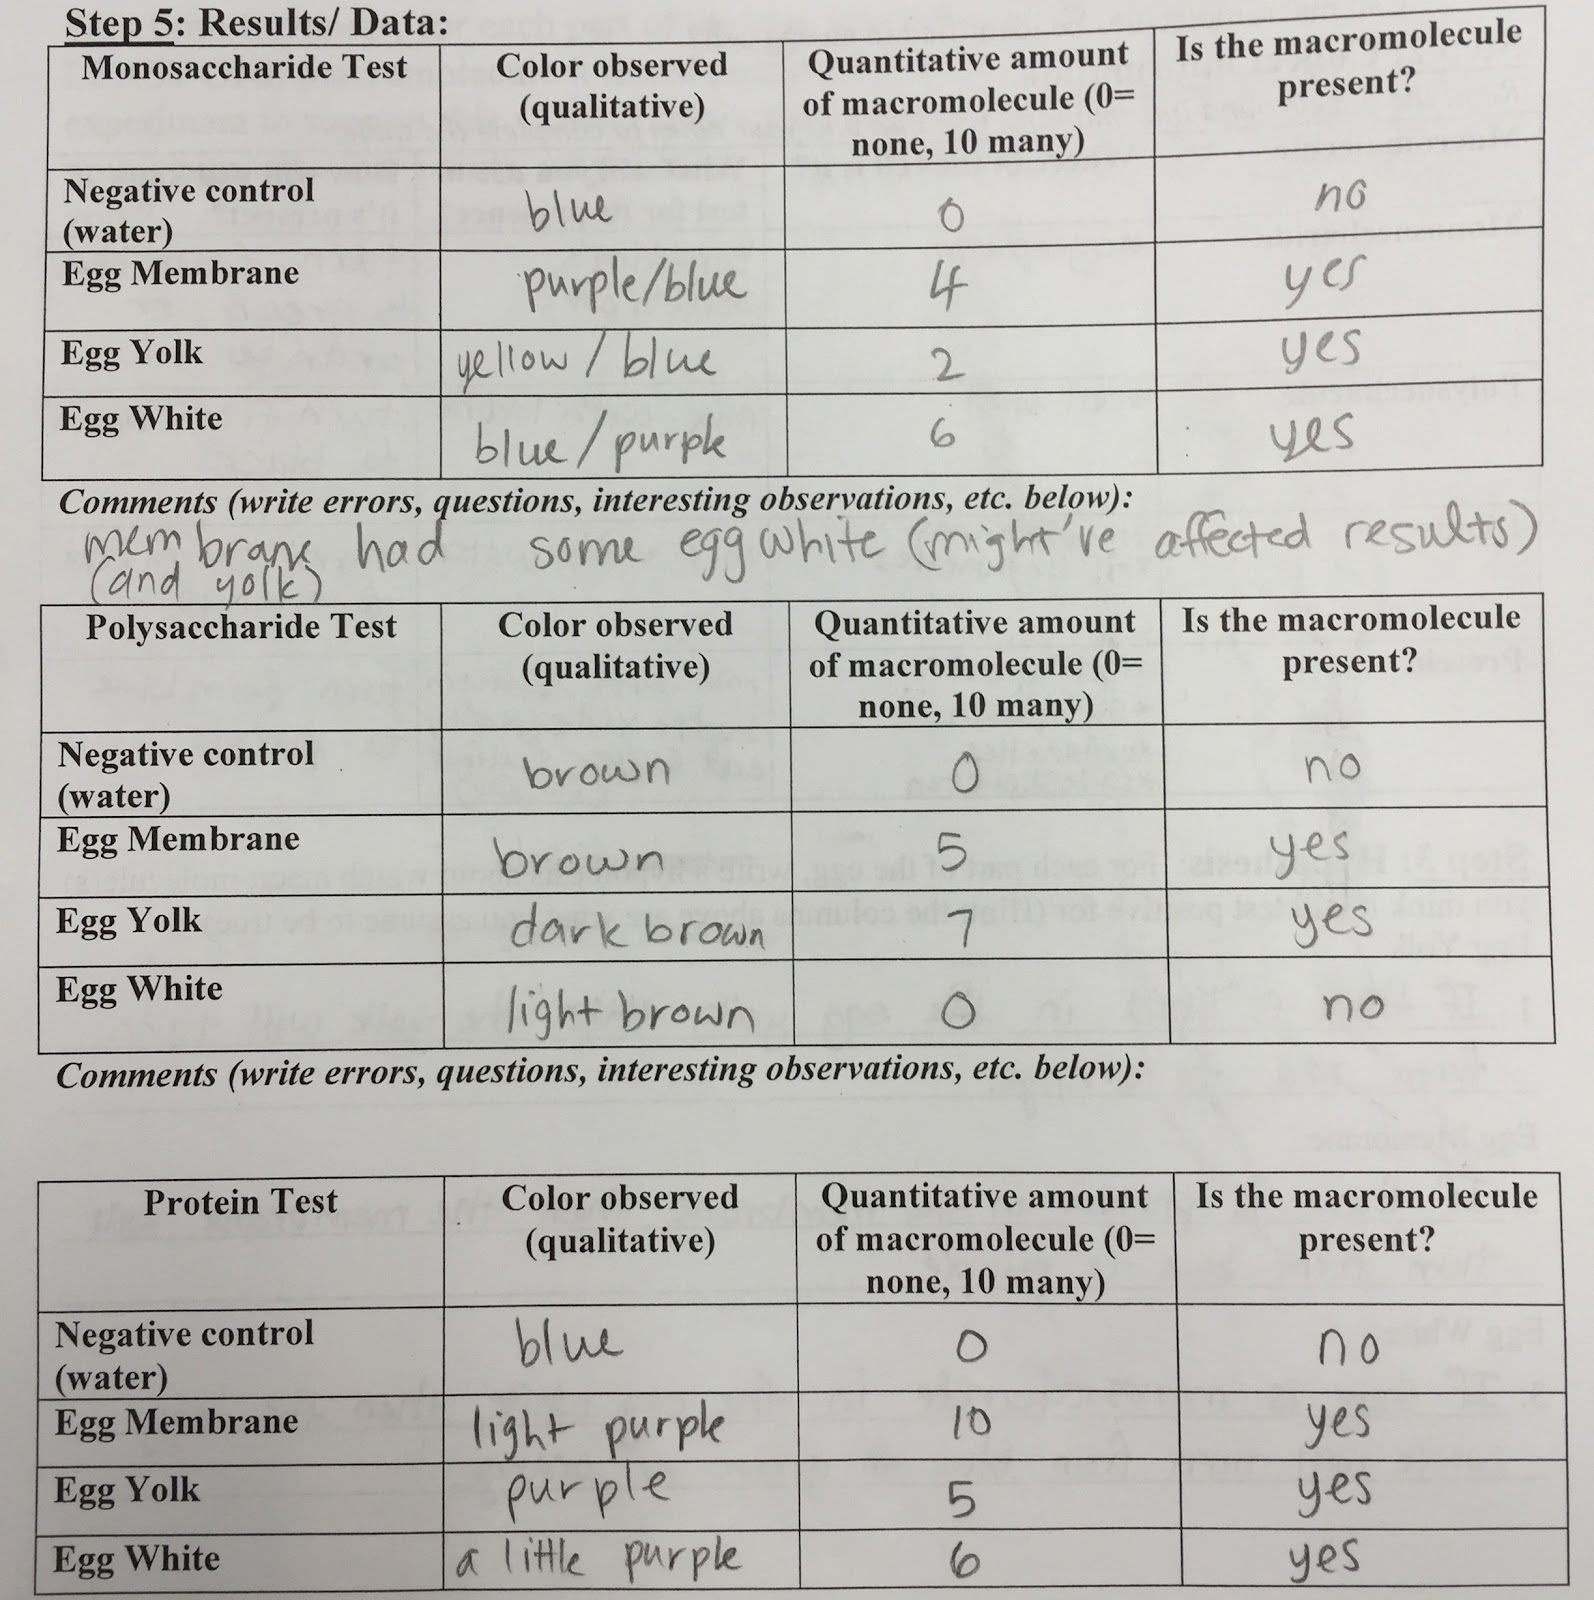 Step 5: Results/ Data:
Monosaccharide Test
Color observed
(qualitative)
Quantitative amount
of macromolecule (0=
none, 10 many)
Is the macromolecule
present?
Negative control
(water)
blue
0
no
Egg Membrane
purple/blue
4
yes
Egg Yolk
yellow / blue
2
yes
Egg White
blue / purple
6
yes
Comments (write errors, questions, interesting observations, etc. below):
membrane had some egg white (might've affected results)
(and yolk)
Polysaccharide Test
Color observed
(qualitative)
Quantitative amount
of macromolecule (0=
none, 10 many)
Is the macromolecule
present?
Negative control
(water)
brown
0
no
Egg Membrane
brown
5
yes
Egg Yolk
dark brown
7
yes
Egg White
light brown
0
no
Comments (write errors, questions, interesting observations, etc. below):
Protein Test
Color observed
(qualitative)
Quantitative amount
of macromolecule (0=
none, 10 many)
Is the macromolecule
present?
Negative control
(water)
blue
0
no
Egg Membrane
light purple
10
yes
Egg Yolk
purple
5
yes
Egg White
a little purple
6
yes